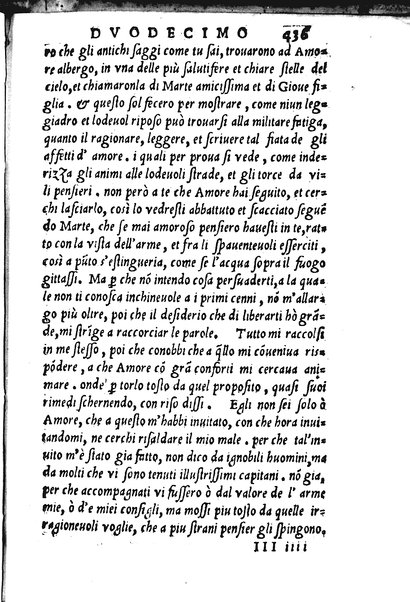 DVODECIMO 436
ro che gli antichi saggi come tu sai, trouarono ad Amo=
re albergo, in vna delle più salutifere et chiare stelle del
cielo, et chiamaronla di Marte amicissima et di Gioue fi=
glia. & questo sol fecero per mostrare, come niun leg=
giadro et lodeuol riposo può trouarsi alla militare fatiga,
quanto il ragionare, leggere, et scriuere tal fiata de gli
affetti d'amore. i quali per proua si vede, come inde=
rizza gli animi alle lodeuoli strade, et gli torce da vi=
li pensieri. non però a te che Amore hai seguito, et cer=
chi lasciarlo, così lo vedresti abbattuto et scacciato seguẽ
do Marte, che se mai amoroso pensiero hauesti in te, rat=
to con la vista dell'arme, et fra li spauenteuoli esserciti,
così a pũto s'estingueria, come se l'acqua sopra il fuogo
gittassi. Ma ꝑ che nõ intendo cosa persuaderti, a la qua=
le non ti conosca inchineuole a i primi cenni, nõ m'allar=
go più oltre, poi che il desiderio che di liberarti hò grã=
de, mi strĩge a raccorciar le parole. Tutto mi raccolsi
in me stesso, poi che conobbi che a q̃llo mi cõueniua ris=
põdere, a che Amore cõ grã conforti mi cercaua ani=
mare. onde' ꝑ torlo tosto da quel proposito, quasi suoi
rimedi schernendo, con riso dissi. Egli non sei solo ò
Amore, che a questo m'habbi inuitato, con che hora inui=
tandomi, ne cerchi risaldare il mio male. per che tal'in=
uito m'è stato gia fatto, non dico da ignobili huomini, ma
da molti che vi sono tenuti illustrissimi capitani. nõ gia,
per che accompagnati vi fussero ò dal valore de l'arme
mie, ò d'e miei consigli, ma mossi piu tosto da quelle ir=
ragioneuoli voglie, che a piu strani pensier gli spingono,
III iiii